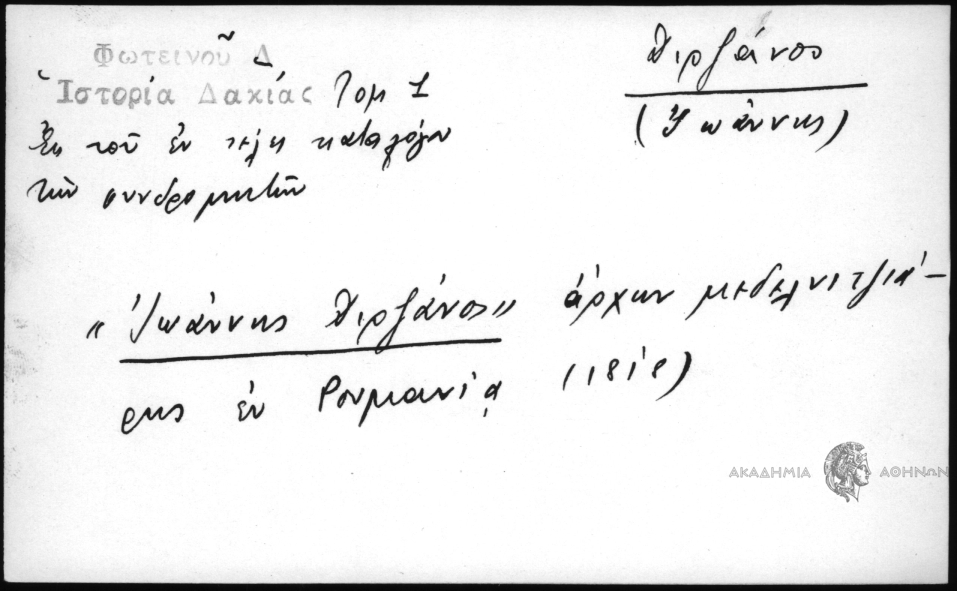 Φωτεινοῦ Δ
Ἱστορία Δακίας Τομ 1
Ἐκ τοῦ ἐν τέλει καταλόγου
τῶν συνδρομητῶν
(Ἰωάννης)
"Ἰωάννης ἄρχων μεδελνιτζιά-
ρης ἐν Ρουμανίᾳ (1818)
ΑΚΑΔΗΜΙΑ ΑΘΗΝΩΝ